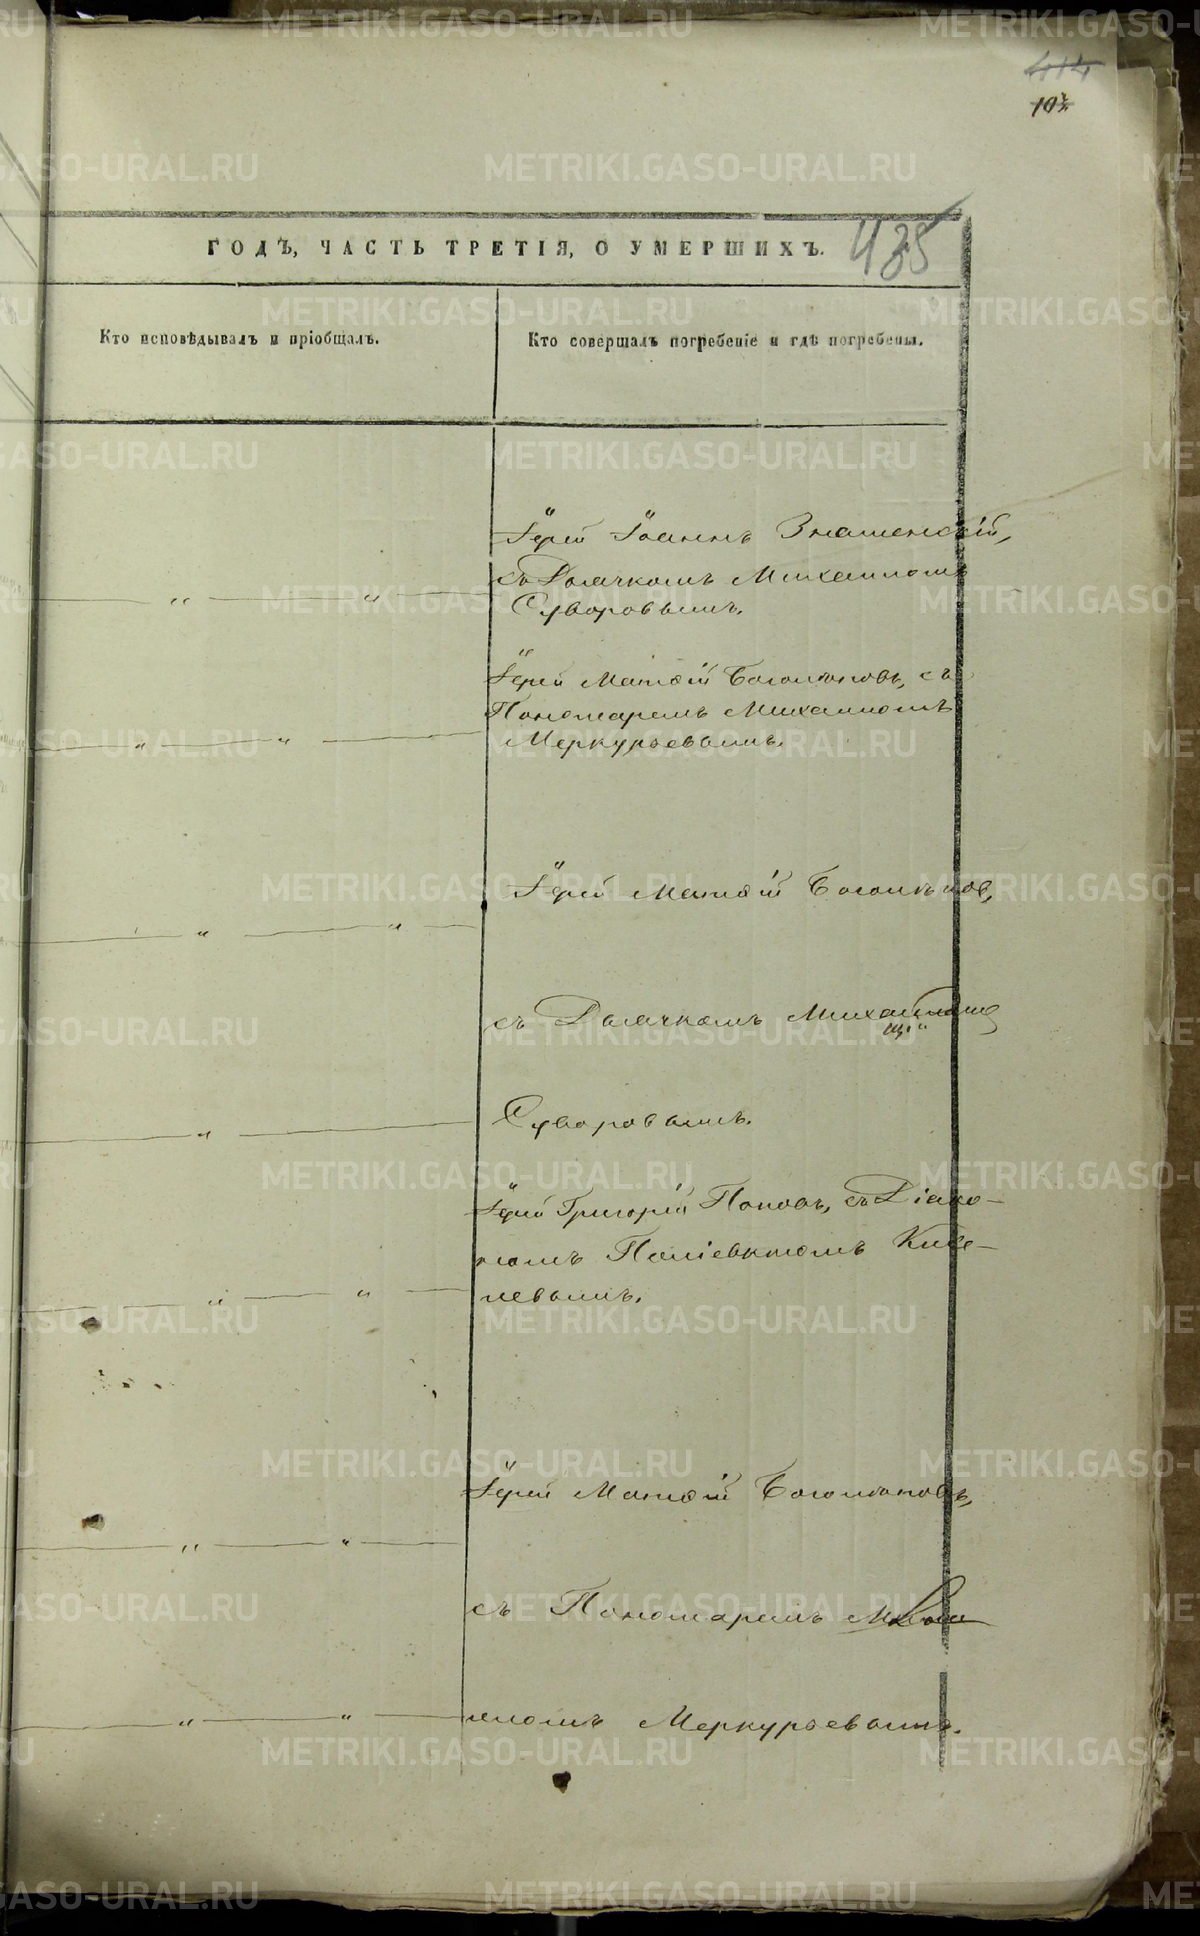 414
103
ГОДЪ, ЧАСТЬ ТРЕТІЯ, О УМЕРШИХЪ.
435
Кто исповѣдывалъ и пріобщалъ.
Кто совершалъ погребеніе и гдѣ погребены.
Іерей Іоаннъ Знаменскій,
съ Дьячкомъ Михаиломъ
Суворовымъ.
Іерей Матѳій Боголѣповъ, съ
Пономаремъ Михаиломъ
Меркурьевымъ.
Іерей Матѳій Боголѣповъ,
съ Дьячкомъ Михаиломъ
Суворовымъ.
Іерей Григорій Поповъ, съ Діако-
номъ Поліевктомъ Кисе-
левымъ.
Іерей Матѳій Боголѣповъ,
съ Пономаремъ
иломъ Меркурьевымъ.
METRIKI.GASO-URAL.RU